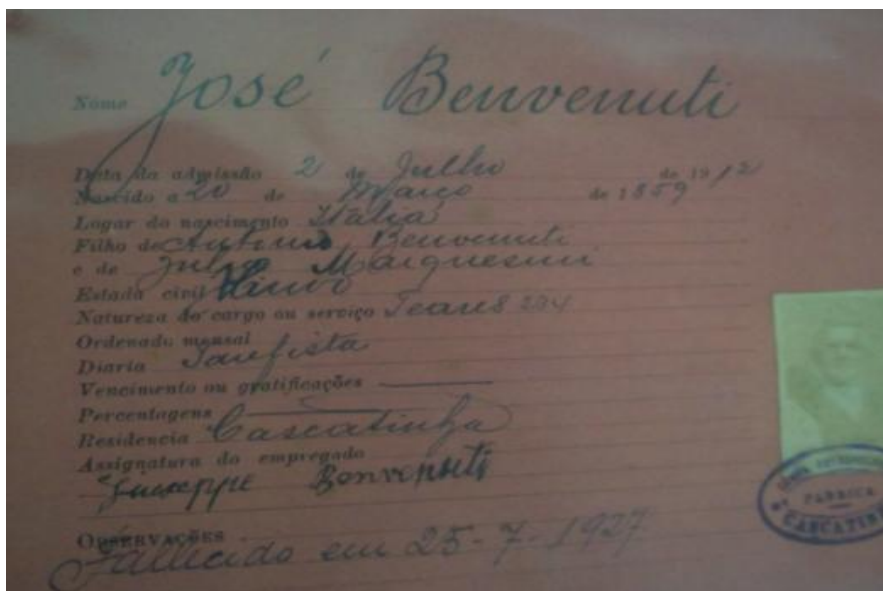 Nome José Benvenuti
Data da admissão 2 de Julho de 1912
Nascido a 20 de Março de 1859
Logar do nascimento Italia
Filho de Antonio Benvenuti
e de Julia
Estado civil Viuvo
Natureza do cargo ou serviço Teares 204
Ordenado mensal
Diaria Tarefista
Vencimento ou gratificações
Percentagens
Residencia Cascatinha
Assignatura do empregado
Giuseppe Benvenuti
OBSERVAÇÕES
Fallecido em 25-7-1927
FABRICA
CASCATINHA